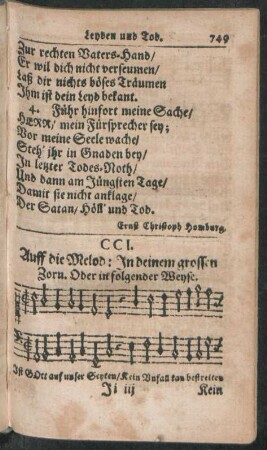 Leyden und Tod. 749
Zur rechten Vaters-Hand/
Er wil dich nicht verseumen/
Laß dir nichts böses Träumen
Ihm ist dein Leyd bekant.
4. Führ hinfort meine Sache/
HErr/ mein Fürsprecher sey;
Vor meine Seele wache/
Steh' ihr in Gnaden bey/
In letzter Todes-Noth/
Und dann am Jüngsten Tage/
Damit sie nicht anklage/
Der Satan/ Höll' und Tod.
Ernst Christoph Homburg.
CCI.
Auff die Melod: In deinem grossen
Zorn. Oder in folgender Weyse.
Ist GOtt auf unser Seyten/ Kein Unfall kan bestreiten
Ji iij Kein